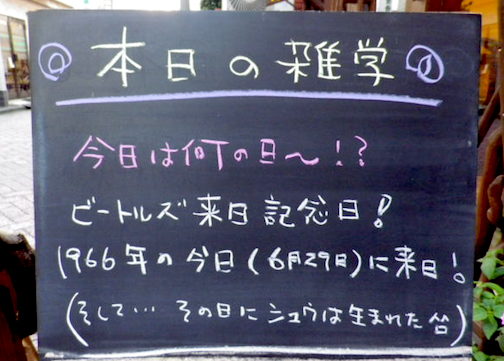 本日の雑学
今日は何の日〜!?
ビートルズ来日記念日!
1966年の今日(6月29日)に来日!
(そして… その日にシュウは生まれた